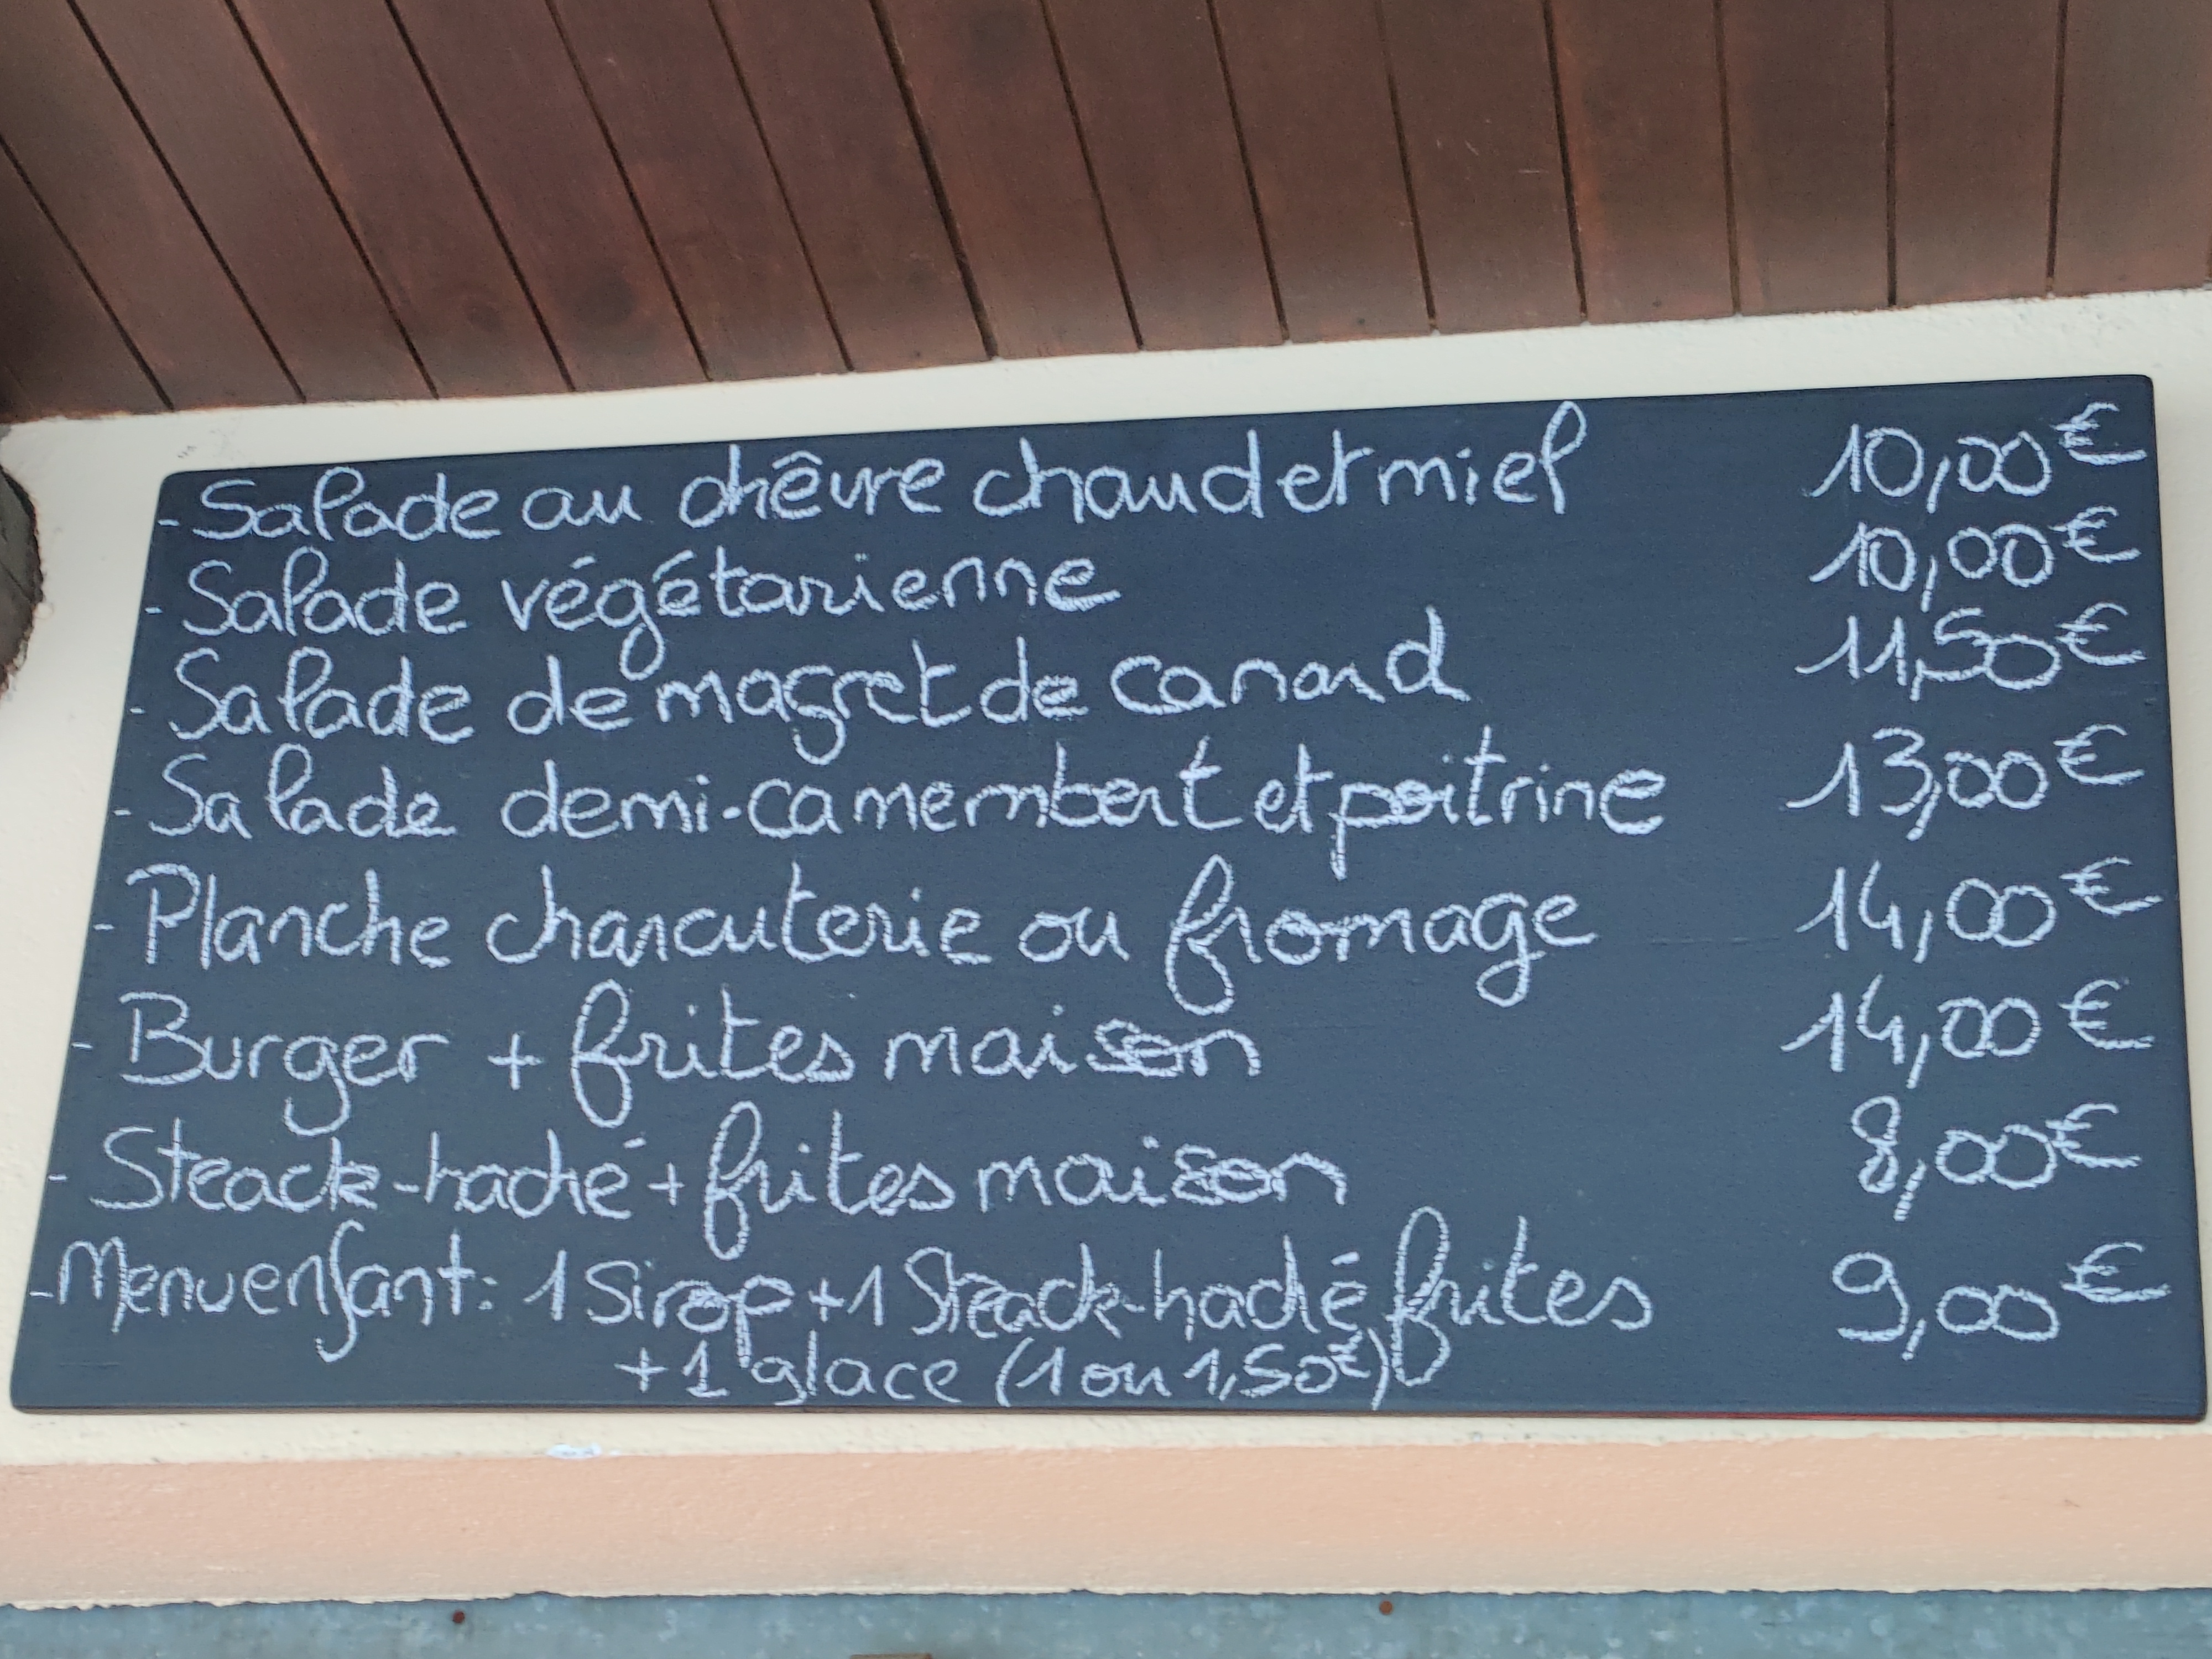 - Salade au chêvre chaud et miel 10,00€
- Salade végétarienne 10,00€
- Salade de magret de canard 11,50€
- Salade demi-camembert et poitrine 13,00€
- Planche charcuterie ou fromage 14,00€
- Burger + frites maison 14,00€
- Steack-haché + frites maison 8,00€
- Menu enfant: 1 Sirop + 1 Steack-haché frites 9,00€
+ 1 glace (1 ou 1,50€)